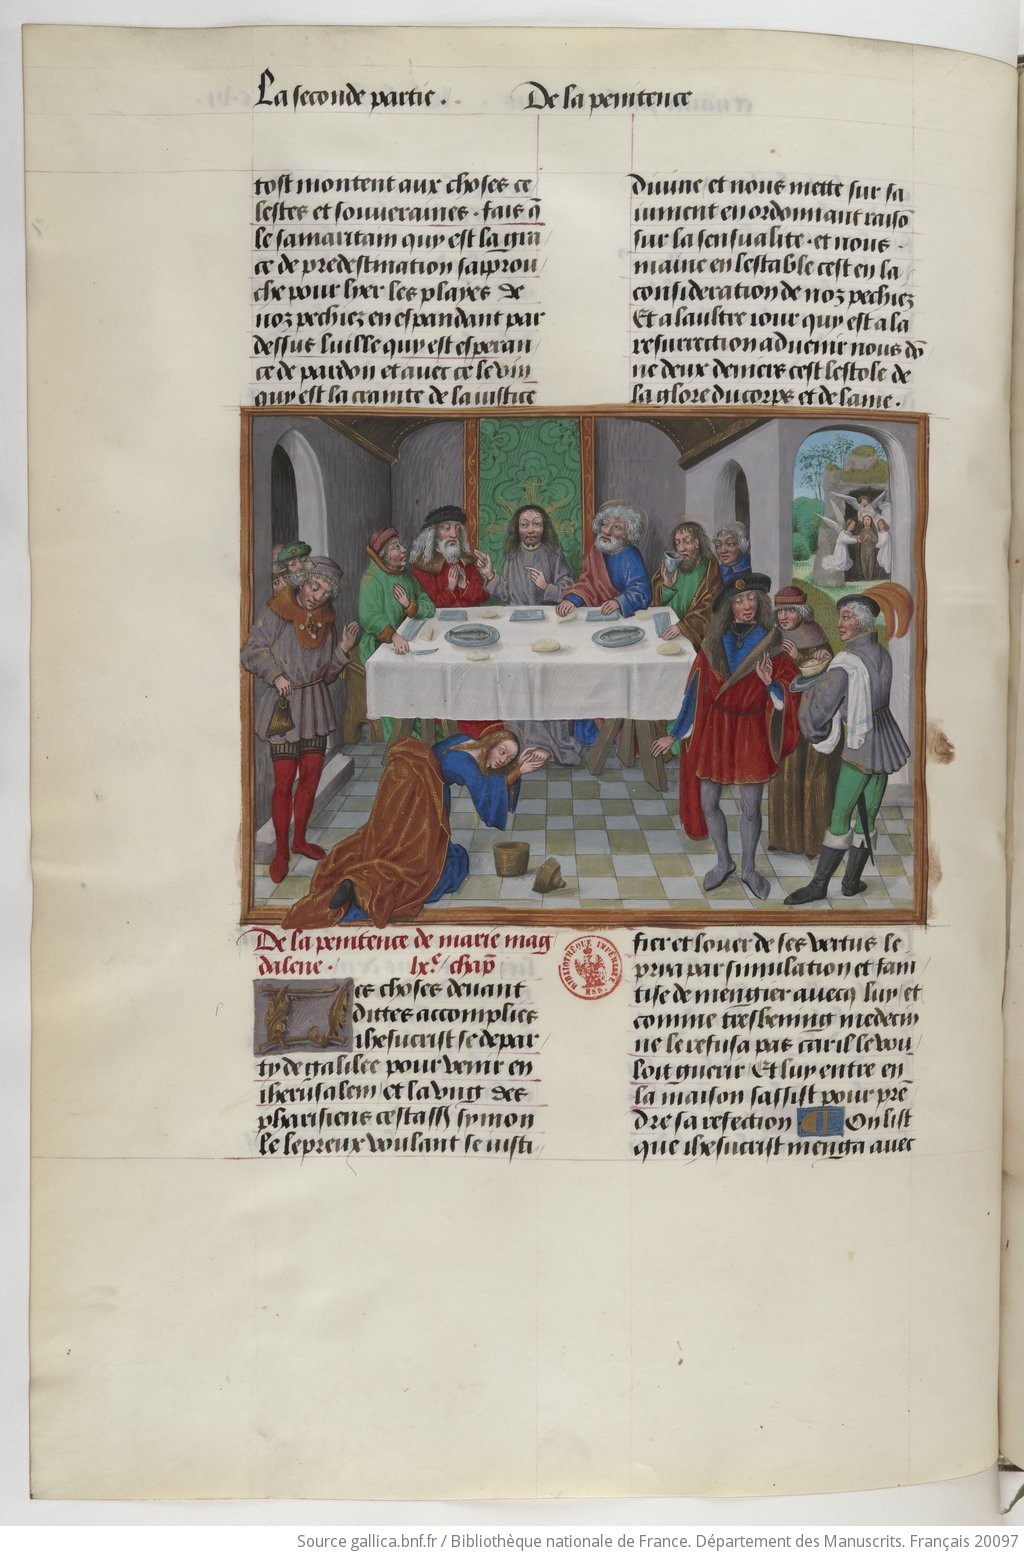 La seconde partie . De la penitence
tost montent aux choses ce
lestes et souveraines . fais q̄
le samaritain quy est la gra
ce de predestination sapprou
che pour lyer les playes de
noz pechiez en espandant par
dessus luille quy est esperan
ce de pardon et avec ce le vin
quy est la crainte de la iustice
divine et nous mette sur sa
iument en ordonnant raisō
sur la sensualite . et nous
maine en lestable cest en la
consideration de noz pechiez
Et a laultre iour quy est a la
resurrection advenir nous dō
ne deux deniers cest lestole de
la glore du corps et de lame .
De la penitence de marie mag
dalene . lxe. chap̄
Les choses devant
dittes accomplies
ihesucrist se depar
ty de galilee pour venir en
iherusalem / et la vng des
pharisiens cestass symon
le lepreux voulant se iusti
fier et louer de ses vertus le
pria par simulation et fain
tise de mengier avecq luy / et
comme tresbening medecin
ne le refusa pas car il le vou
loit guerir / Et luy entre en
la maison sassist pour prē
dre sa refection ¶ On list
que ihesucrist menga avec
BIBLIOTHÈQUE IMPÉRIALE
MSS.
Source gallica.bnf.fr / Bibliothèque nationale de France. Département des Manuscrits. Français 20097